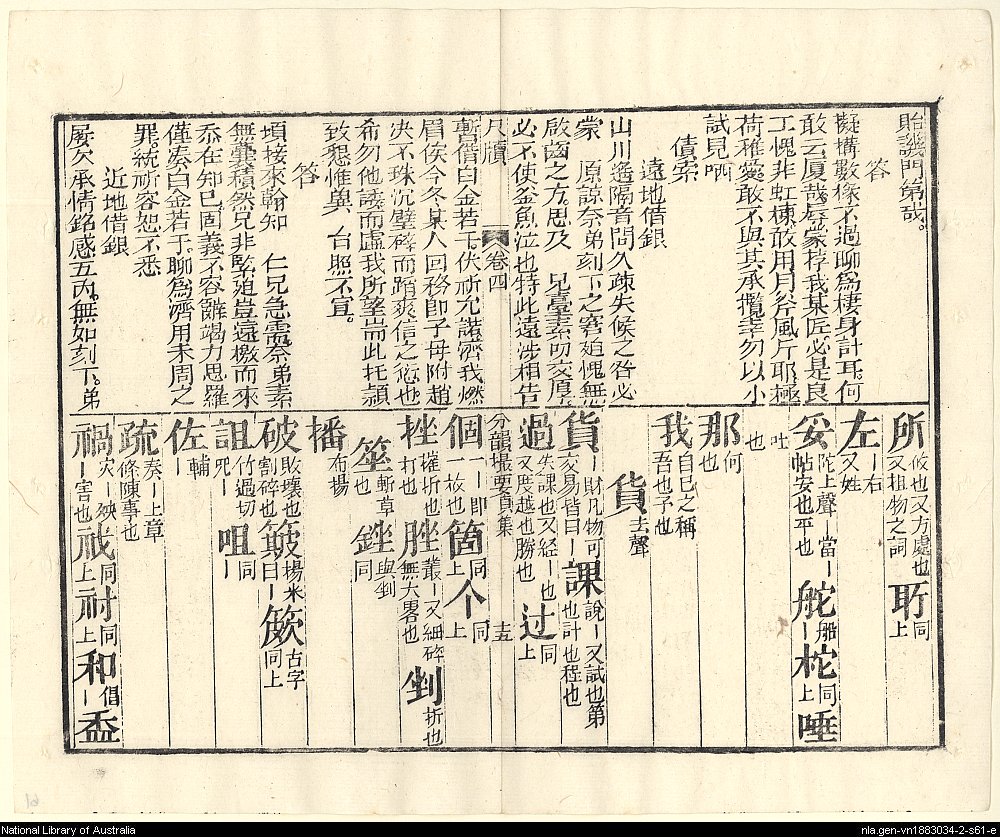 貽譏門第哉。
答
擬搆數椽不過聊爲棲身計耳何
敢云厦哉辱家捊我某匠必是良
工愧非虹棟敢用月斧風斤耶極
荷雅愛敢不與其承攬幸勿以小
試見哂
債索
遠地借銀
山川遥隔音問久疎失候之咎必
蒙 原諒奈弟刻下之窘廹愧無
啟齒之方思及 兄臺素叨交厚
必不使釜魚泣也特此遠涉相告
尺牘 卷四
暫借白金若干伏祈允諾濟我燃
眉俟今冬某人回務即子母附趙
决不珠沉璧碎而蹈爽信之愆也
希勿他議而虛我所望耑此托頴
致懇惟兾 台照不宣。
答
項接來翰知 仁兄急需奈弟素
無囊積然兄非緊廹豈遠檄而來
忝在知已固義不容辭竭力思羅
僅奏白金若于聊爲濟用未周之
罪統祈容恕不悉
近地借銀
屡欠承情銘感五內。無如刻下。弟
所 攸也又方處也又祖物之詞 聍 同上
左 ｜右又姓
妥 陀上聲｜當｜帖安也平也 舵 ｜船 柁 同上 唾
吐也
那 何也
我 自已之稱吾也予也
貨 去聲
貨 ｜財凡物可交易皆曰｜ 課 說｜又試也第也計也程也
過 失｜課也又经｜也又度越也勝也 过 同上
分韻撮要貞集 十五
個 一｜即一故也 箇 同上 个 同上
挫 摧折也打也 脞 叢｜又細碎無大畧也 剉 折也
莝 斬草也 銼 與剉同
播 布揚
破 敗壞也割碎也 簸 揚米曰｜ 𥴮 古字同上
詛 竹過切咒｜也 咀 同｜
佐 輔｜
疏 奏｜上章條陳事也
禍 灾｜殃｜害也 𥘹 同上 祔 同上 和 倡｜ 盉
National Library of Australia
nla.gen-vn1883034-2-s61-e